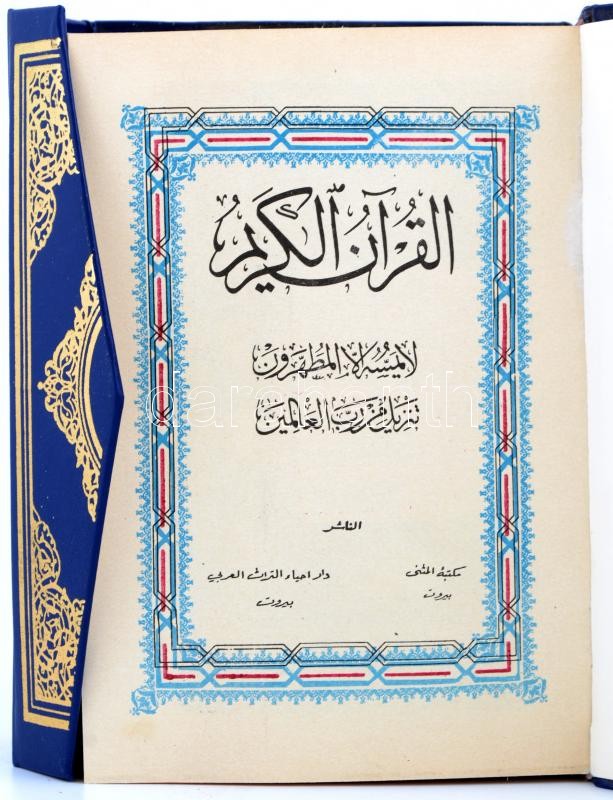 القرآن الكريم
لا يمسه إلا المطهرون
تنزيل من رب العالمين
الناشر
مكتبة المثنى
بيروت
دار احياء التراث العربي
بيروت